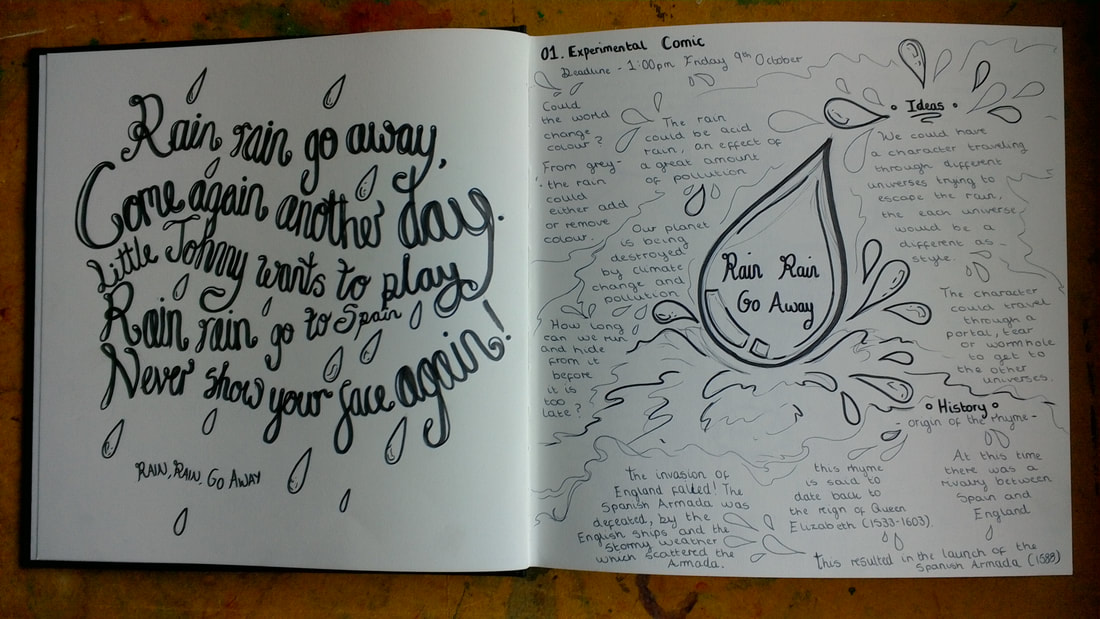 Rain rain go away,
Come again another day.
Little Johnny wants to play
Rain rain go to Spain
Never show your face again!
RAIN, RAIN, GO AWAY
01. Experimental Comic
Deadline - 1:00pm Friday 9th October
Could
the world
change
colour?
From grey-
the rain
could
either add
or remove
colour.
The rain
could be acid
rain, an effect of
a great amount
of pollution
Our planet
is being
destroyed
by climate
change and
pollution
How long
can we run
and hide
from it
before
it is
too
late?
Rain Rain
Go Away
• Ideas •
We could have
a character traveling
through different
universes trying to
escape the rain,
the each universe
would be a
different as-
style.
The character
could travel
through a
portal, tear
or wormhole
to get to
the other
universes.
• History •
- origin of the rhyme -
At this time
there was a
rivalry between
Spain and
England
this rhyme
is said to
date back to
the reign of Queen
Elizabeth (1533-1603)
this resulted in the launch of the
Spanish Armada (1588)
the invasion of
England failed! The
Spanish Armada was
defeated, by the
English ships and the
stormy weather
which scattered the
Armada.